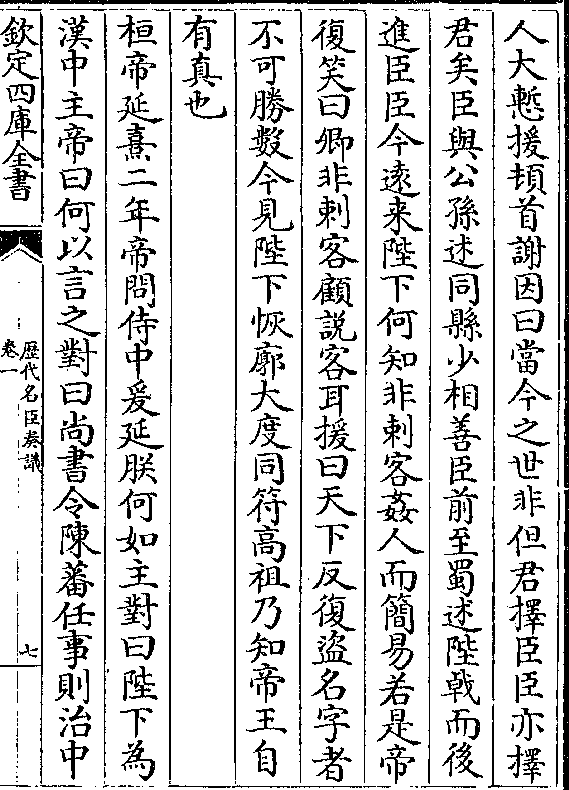 人大慙援頓首謝因曰當今之世非但君擇臣臣亦擇
君矣臣與公孫述同縣少相善臣前至蜀述陛戟而後
進臣臣今逺来陛下何知非刺客姦人而簡易若是帝
復笑曰卿非刺客顧説客耳援曰天下反復盜名字者
不可勝數今見陛下恢廓大度同符高祖乃知帝王自
有真也
桓帝延熹二年帝問侍中爰延朕何如主對曰陛下為
漢中主帝曰何以言之對曰尚書令陳蕃任事則治中
欽定四庫全書
歴代名臣奏議
卷一
七